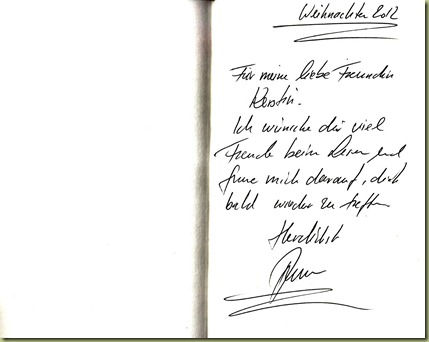 Weihnachten 2012
Für meine liebe Freundin
Kerstin.
Ich wünsche dir viel
Freude beim Lesen und
freue mich darauf, dich
bald wieder zu treffen
Herzlichst